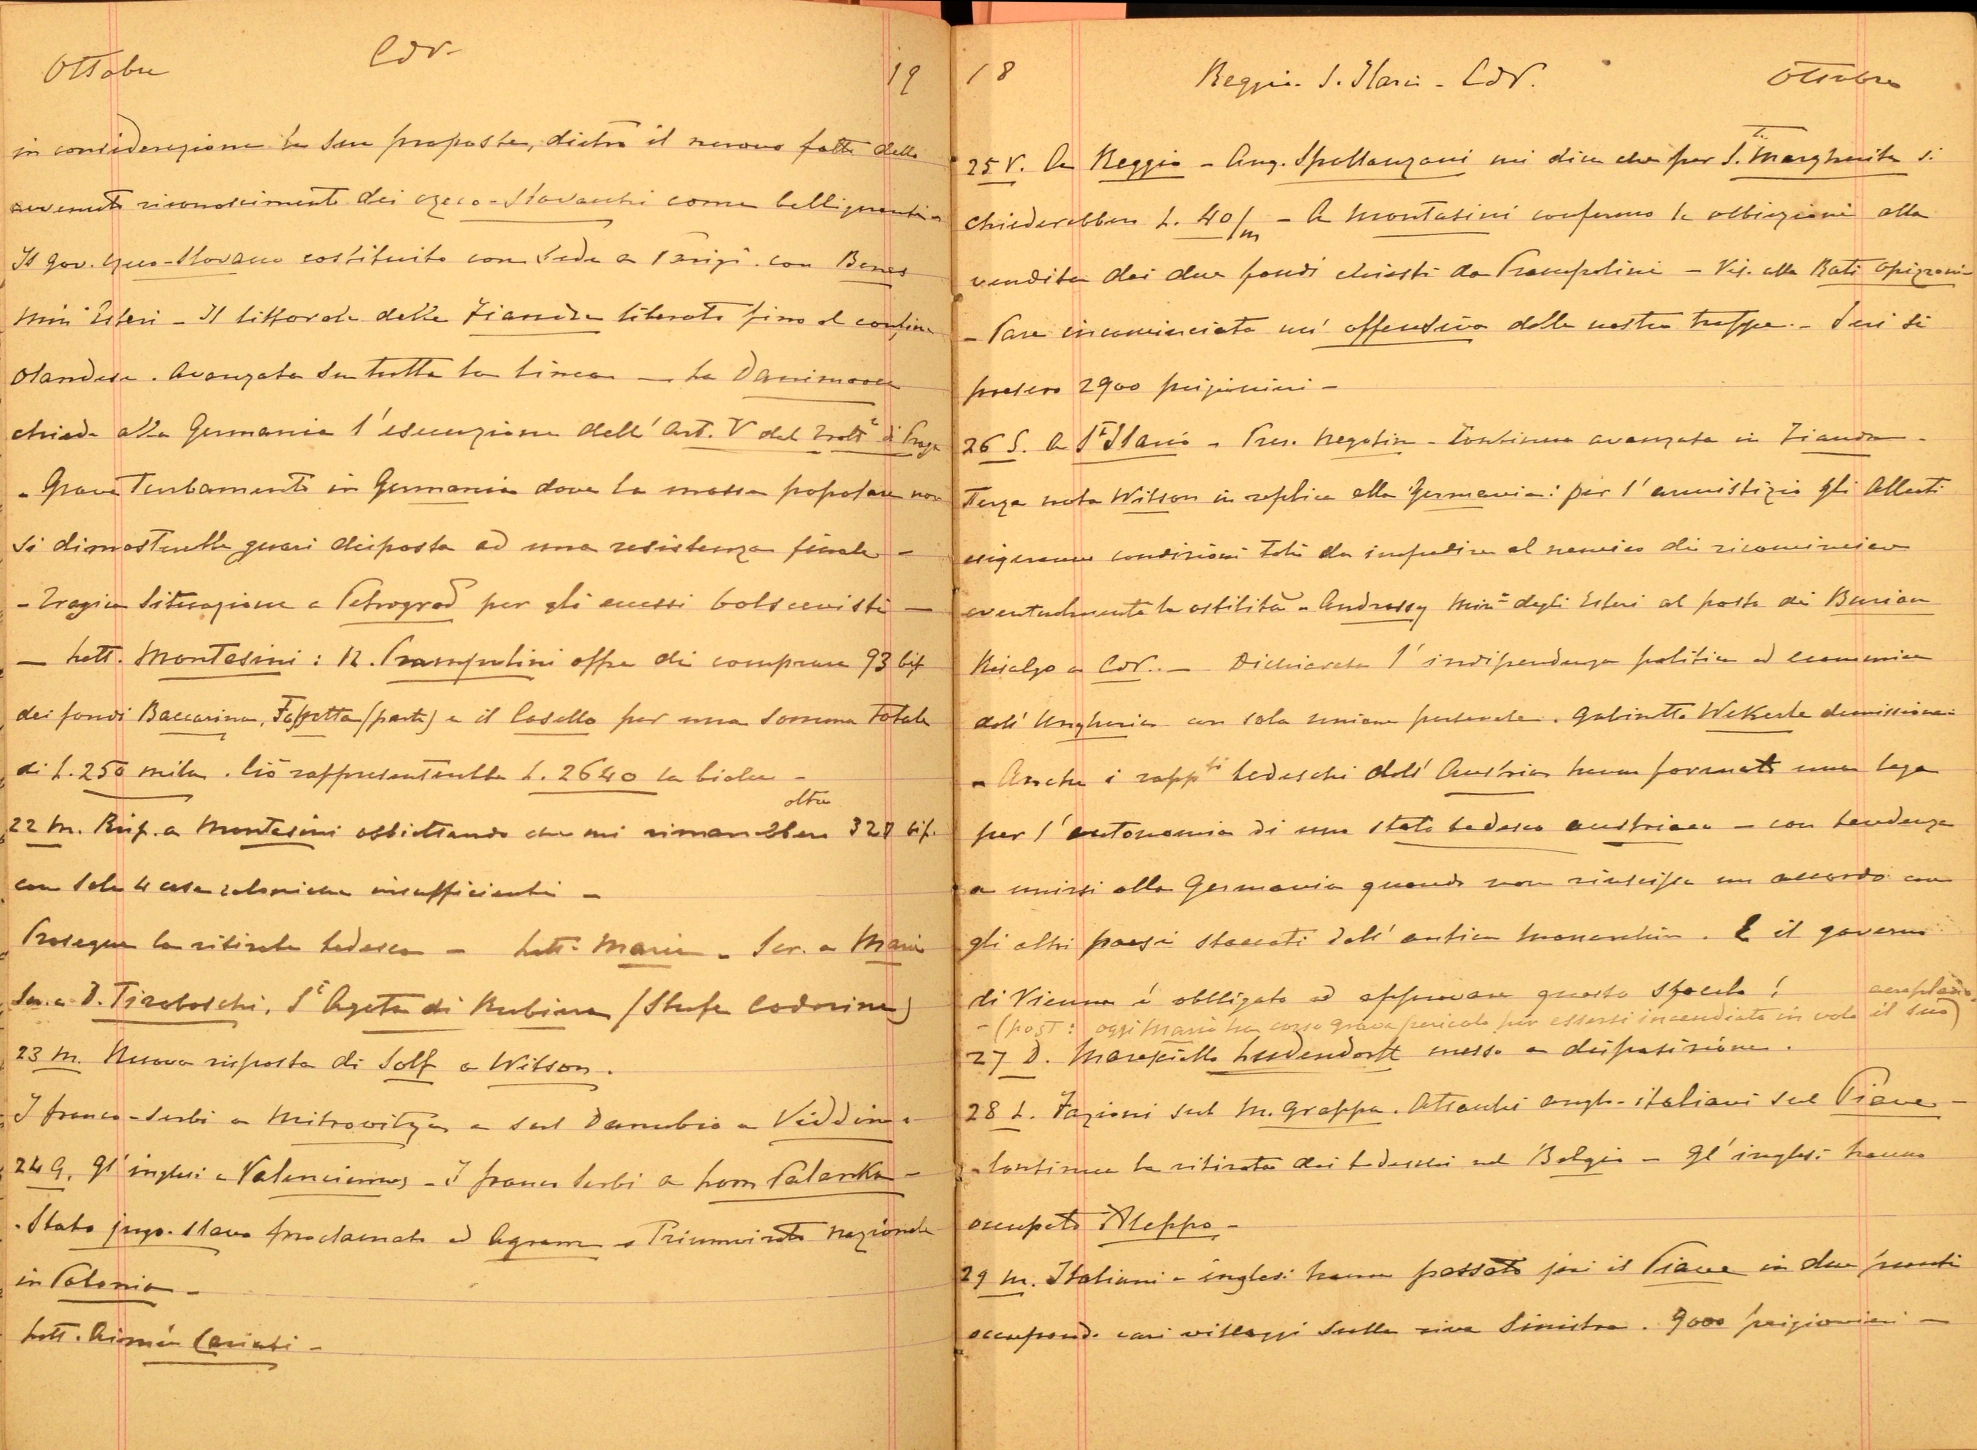 Ottobre CdV. 19
in considerazione la sua proposta, dietro il nuovo fatto dello
avvenuto riconoscimento dei czeco-slovacchi come belligeranti -
Il gov. czeco-slovacco costituito con sede a Parigi con Benes
Min° Esteri - Il littorale della Fiandra liberato fino al confine
olandese. Avanzata su tutta la linea - La Danimarca
chiede alla Germania l'esecuzione dell'Art. V del Tratt° di Praga
- Grave turbamento in Germania dove la massa popolare non
si dimostrerebbe guari disposta ad una resistenza finale -
- Tragica situazione a Petrograd per gli eccessi bolscevisti -
- Lett. Montesini: R. Prampolini offre di comprare 93 bif.
dei fondi Baccarina, (parte) e il Casello per una somma totale
di L. 250 mila. Ciò rappresenterebbe L. 2640 la biolca -
22 M. Risp. a Montesini obbiettando che mi rimarrebbero oltre 328 bif.
con sole 4 case coloniche insufficienti -
Prosegue la ritirata tedesca - Lett. Mario - Scr. a Mario
Scr. a D. Tiraboschi, S. Agata di Rubiera (Stufe Codorine)
23 M. Nuova risposta di Solf a Wilson.
I franco-serbi a Mitrovitza e sul Danubio a Viddino -
24 G. Gl'inglesi a Valenciennes - I franco serbi a Lom Palanka -
- Stato jugo-slavo proclamato ad Agram e Triumvirato nazionale
in Polonia -
Lett. Aimée Cariati -
18 Reggio - S. Ilario - CdV. Ottobre
25 V. A Reggio - Ang. Spallanzani mi dice che per S. Margherita si
chiederebbero L. 40/m - A Montasini confermo le obbiezioni alla
vendita dei due fondi chiesti da Prampolini - Vis. alla Rati Opizzoni -
- Pare incominciata un'offensiva delle nostre truppe - Ieri si
presero 2900 prigionieri -
26 S. A S. Ilario - Continua avanzata in Fiandra -
Terza nota Wilson in replica alla Germania: per l'armistizio gli Alleati
esigeranno condizioni tali da impedire al nemico di ricominciare
eventualmente le ostilità - Andrassy Min° degli Esteri al posto di Burian
Risalgo a CdV. - Dichiarata l'indipendenza politica ed economica
dell'Ungheria con sola unione personale. Gabinetto Wekerle dimissiona:
- Anche i rapp.ti tedeschi dell'Austria hanno formato una lega
per l'autonomia di uno stato tedesco austriaco - con tendenza
a unirsi alla Germania quando non riuscisse un accordo con
gli altri paesi staccati dall'antica monarchia. E il governo
di Vienna è obbligato ad approvare questo sfacelo!
- (post: oggi Mario ha corso grave pericolo per essersi incendiato in volo il suo aeroplano)
27 D. Maresciallo Ludendorff messo a disposizione.
28 L. Fazioni sul M. Grappa. Attacchi anglo-italiani sul Piave -
- Continua la ritirata dei tedeschi nel Belgio - Gl'inglesi hanno
occupato Aleppo -
29 M. Italiani e inglesi hanno passato jeri il Piave in due punti
occupando vari villaggi sulla riva sinistra. 9000 prigionieri -